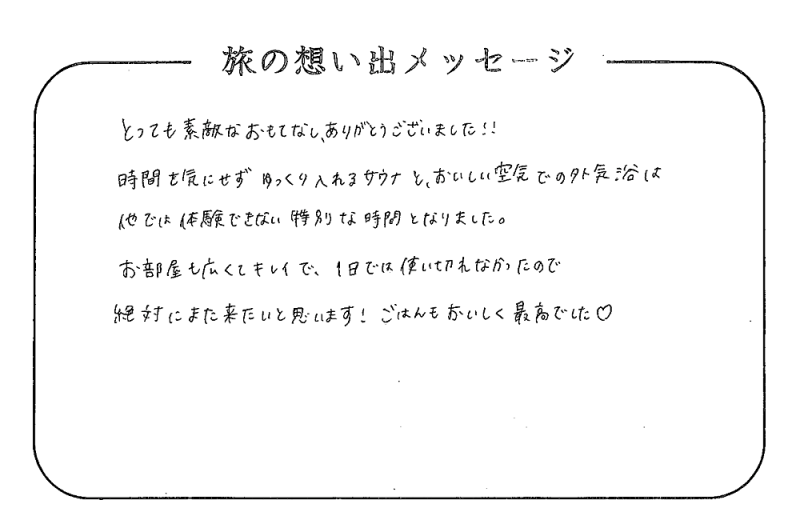 旅の想い出メッセージ
とっても素敵なおもてなし、ありがとうございました!!
時間を気にせずゆっくり入れるサウナと、おいしい空気での外気浴は
他では体験できない特別な時間となりました。
お部屋も広くてキレイで、1日では使い切れなかったので
絶対にまた来たいと思います! ごはんもおいしく最高でした♡